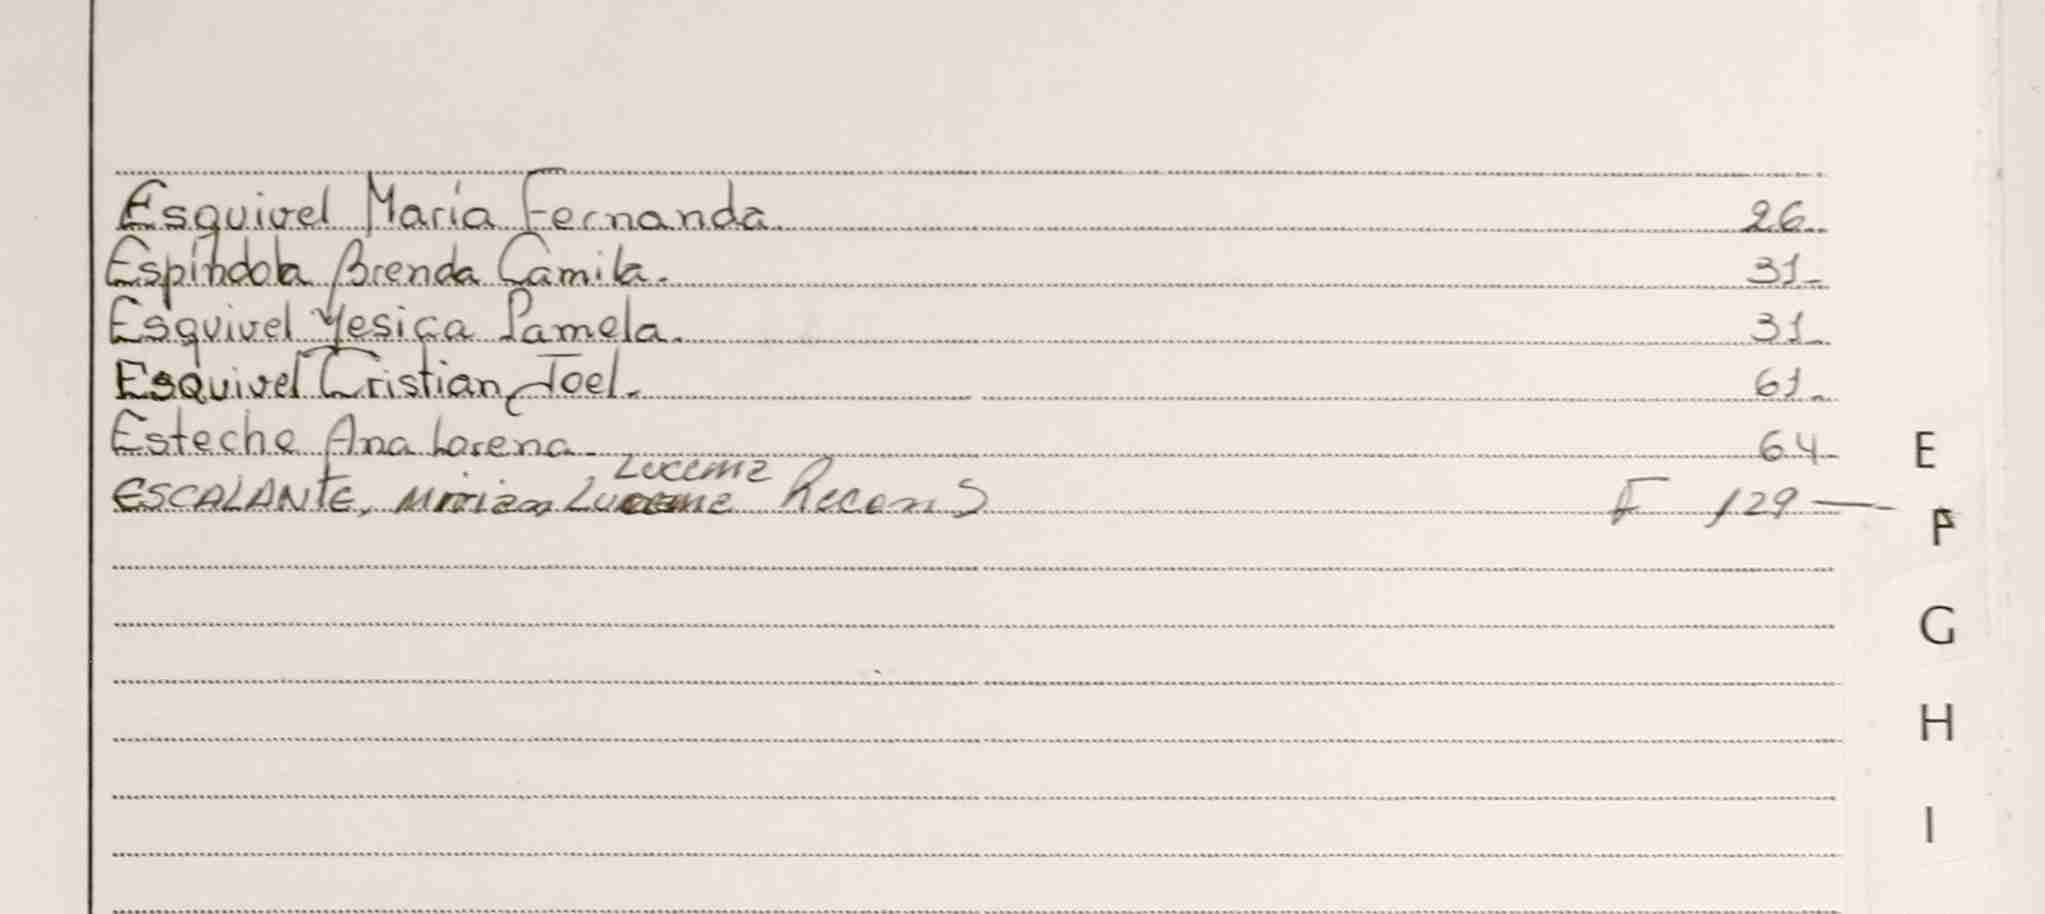 Esquivel María Fernanda. 26.
Espíndola Brenda Camila. 31_
Esquivel Yesica Pamela. 31_
Esquivel Cristian Joel. 61_
Esteche Ana Lorena. 64_
Lucema
ESCALANTE, Miriam F 129 —
E
F
G
H
I